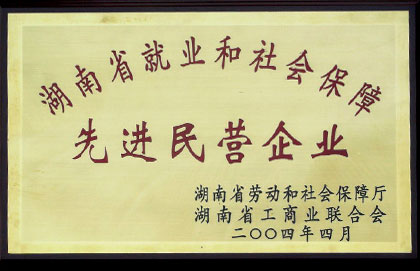 湖南省就业和社会保障
先进民营企业
湖南省劳动和社会保障厅
湖南省工商业联合会
二〇〇四年四月